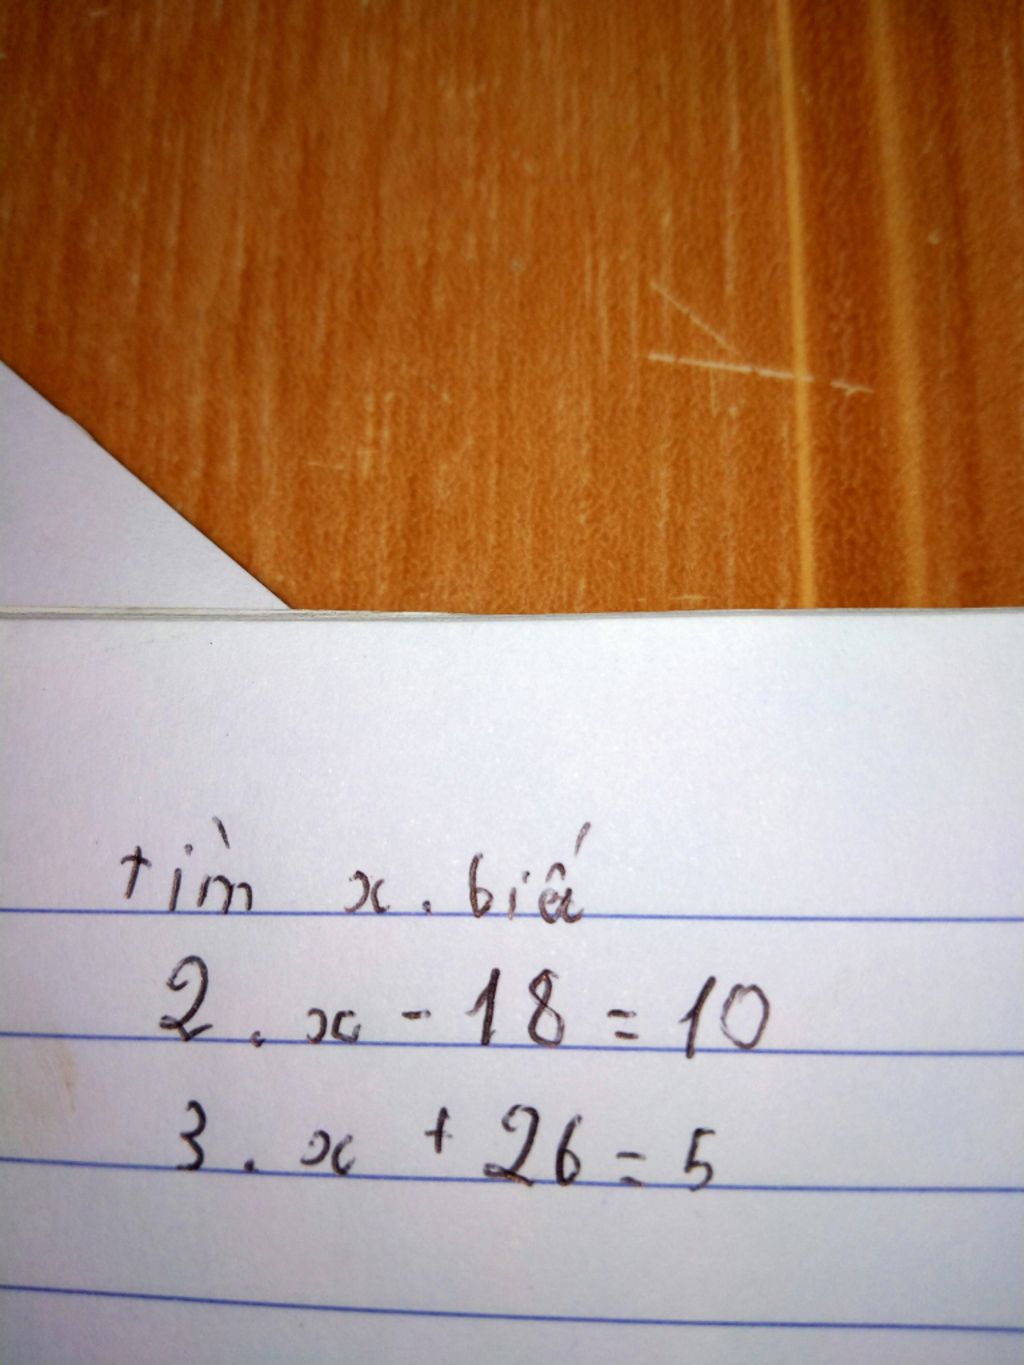 tìm x. biết
2. x - 18 = 10
3. x + 26 = 5